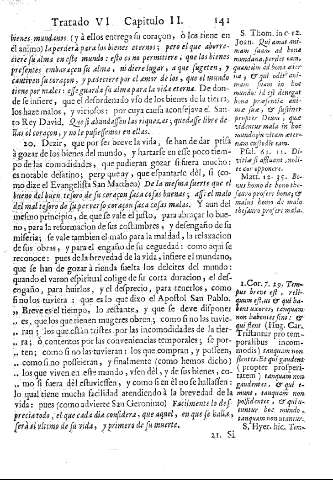 Tratado VI Capitulo II. 141
bienes mundanos (y à ellos entrega su coraçon, ò los tiene en
èl animo) la perderà para los bienes eternos; pero el que aborre-
diere su alma en este mundo: esto es no permitiere, que los bienes
presentes embaracen su alma, ni diere lugar, a que sugeten, y
cautiven su coraçon, y padeciere por el amor de los, que el mundo
tiene por males: esse guarda su alma para la vida eterna. De don-
de se infiere, que el desordenado vso de los bienes de la tierra,
los haze malos, y viciosos: por cuya causa aconsejava el San-
to Rey David, Q si abundassen las riquezas, quedasse libre de
ellas el coraçon, y no le pusiessemos en ellas.
20. Dezir, que por ser breve la vida, se han de dar prisa
à gozar de los bienes del mundo, y hartarse en este poco tiem-
po de las comodidades, que pudieran gozar si fuera mucho:
es notable desatino; pero que ay, que espantarse dèl, si (co-
mo dize el Evangelista San Mattheo) De la mesma suerte que el
bueno del buen tesoro de su coraçon saca cosas buenas; assi el malo
del mal tesoro de su perverso coraçon saca cosas malas. Y aun del
mesmo principio, de que se vale el justo, para abraçar lo bue-
no, para la reformacion de sus costumbres, y desengaño de su
miseria; se vale tambien el malo para la maldad, la relaxacion
de sus obras, y para el engaño de su ceguedad: como aqui se
reconoce: pues de la brevedad de la vida, infiere el mundano,
que se han de gozar à rienda suelta los deleites del mundo:
quando el varon espiritual colige de su corta duracion, el des-
engaño, para huirle, y el desprecio, para tenerlos, como
si no los tuviera: que es lo que dixo el Apostol San Pablo.
„ Breve es el tiempo, lo restante, y que se deve disponer
„ es, que los que tienen mugeres obren, como si no las tuvie-
„ ran; los que estàn tristes por las incomodidades de la tier-
„ ra; ò contentos por las conveniencias temporales; se por-
„ ten; como si no las tuvieran: los que compran, y posseen,
„ como si no posseieran, y finalmente (como hemos dicho)
„ los que viven en este mundo, vsen dèl, y de sus bienes, co-
„ mo si fuera dèl estuviessen, y como si en èl no se hallassen:
lo qual tiene mucha facilidad atendiendo à la brevedad de la
vida: pues (como advierte San Geronimo) Facilmente lo des-
precia todo, el que cada dia considera, que aquel, en que se halla,
serà el vltimo de su vida, y primero de su muerte.
21. Si
S. Thom. in c. 12.
Joan. Qui amat ani-
mam suam ad bona
mundana, perdet eam,
quantum ad bona æter-
na, & qui odit ani-
mam suam in hoc
mundo id est denegat
bona præsentia ani-
mæ suæ, & sustinet
propter Deum, quæ
videntur mala in hoc
mundo, in vitam æter-
nam custodit eam.
Psal. 61. 11. Di-
vitiæ si affluant, noli-
te cor apponere.
Matt. 12. 35. Bo-
nus homo de bono the-
sauro profert bona; &
malus homo de malo
thesauro profert mala.
1. Cor. 7. 29. Tem-
pus breve est, reli-
quum est, ut & qui ha-
bent uxores, tanquam
non habentes sint: &
qui flent (Hug. Car.
Tristantur pro tem-
poralibus incom-
modis) tanquam non
flentes. Et qui gaudent
( propter prosperi-
tatem ) tanquam non
gaudentes, & qui e-
munt, tanquam non
possidentes, & qui u-
tuntur hoc mundo,
tanquam non utantur.
S. Hyer. hic. Tem-